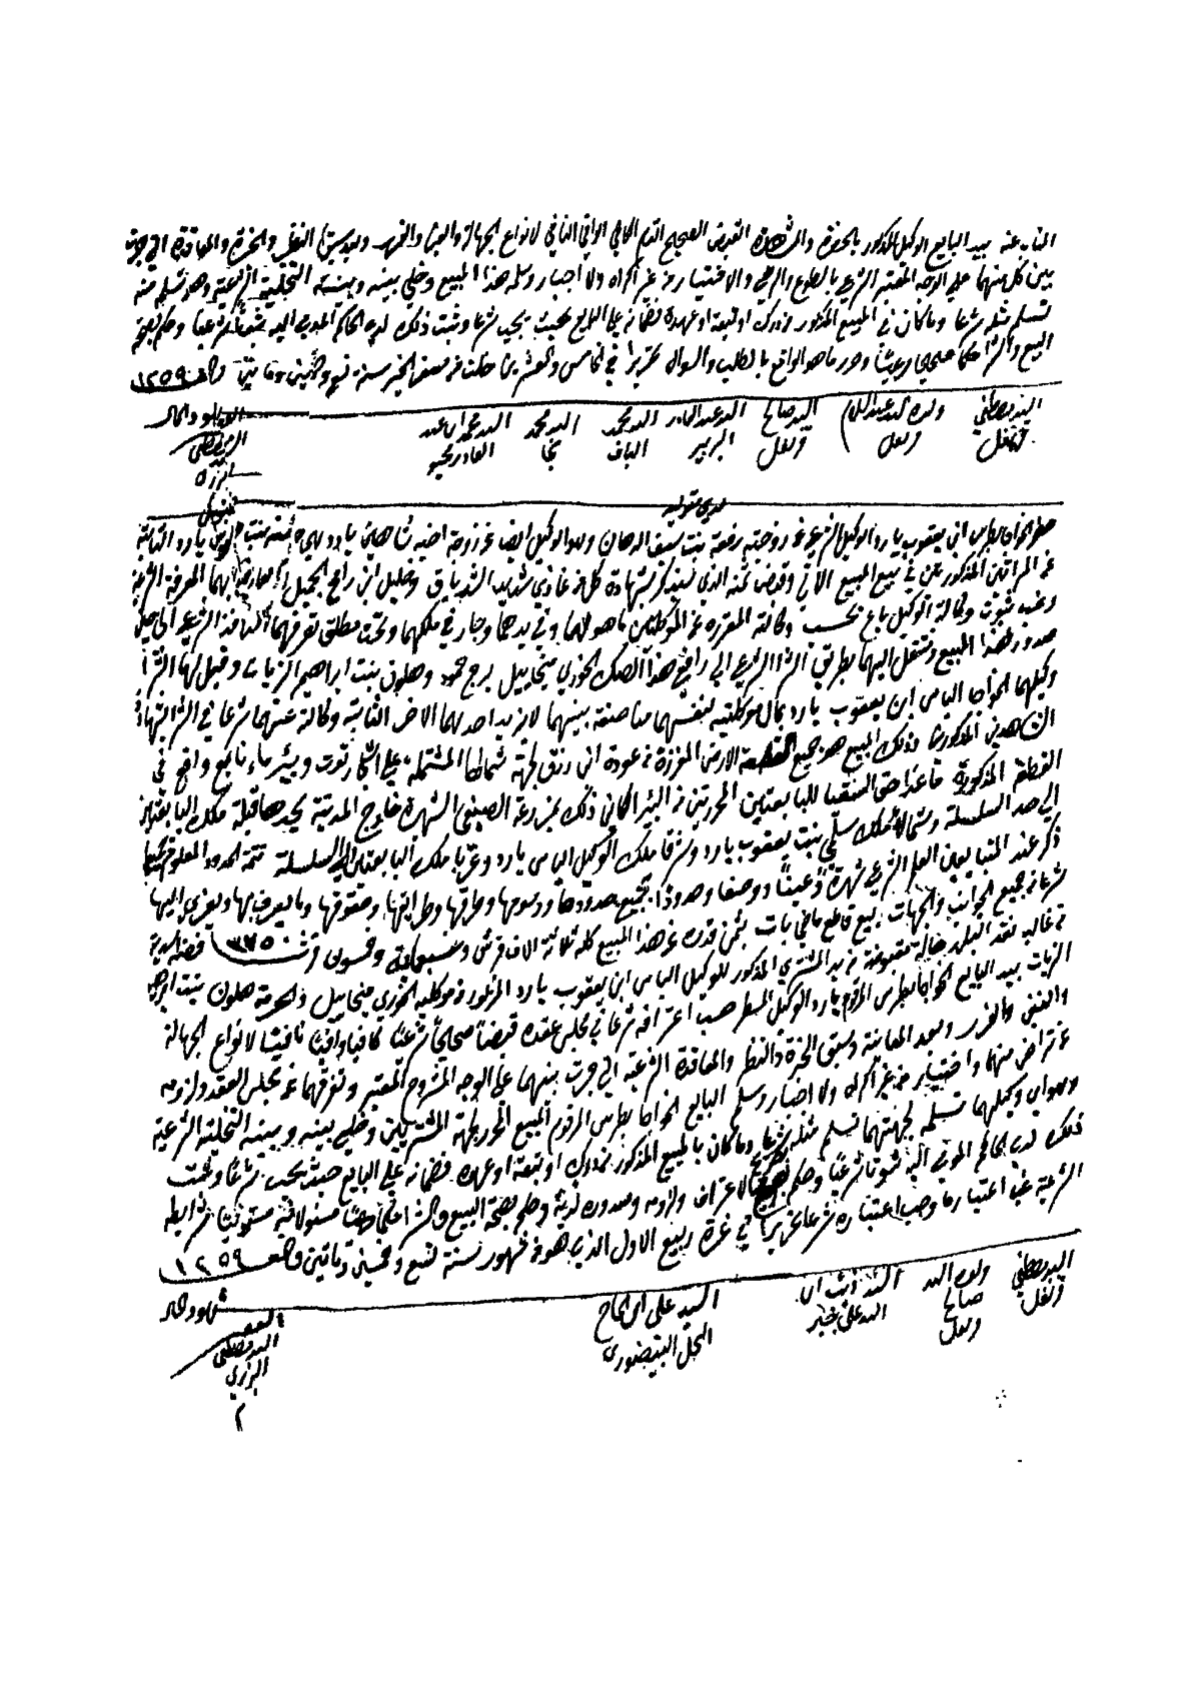 المناب عنه بيد البايع الوكيل المذكور بالحضرة والمشاهدة القبض الصحيح التام الكافي الوافي النافي لانواع الجهالة والغبن والغرر وبعد سبق النظر والخبرة والمعاقدة التي جرت
بين كل منهما على الوجه المعتبر الشرعي بالطوع والرضى والاختيار من غير اكراه ولا اجبار وسلمه هذا المبيع وخلي بينه وبينه التخلية الشرعية وهو تسلم منه
تسلم مثله شرعا وما كان في المبيع المذكور من درك او تبعة او عهدة فضمانه على البايع بحيث يجب شرعا وثبت ذلك لدى الحاكم المومى اليه ثبوتا شرعيا وحكم بصحة
البيع والشرا حكما صحيحا مرعيا وحرر ما هو الواقع بالطلب والسوال تحريرا في الخامس والعشرين خلت من صفر الخير سنة تسع وخمسين ومايتين والف ١٢٥٩
السيد مصطفى قرنفل
ولده السيد عبد السلام قرنفل
السيد صالح قرنفل
السيد عبد القادر البربير
السيد محمد الباف
السيد محمد نجا
السيد محمد ابن عبد القادر يحيو
شهود الحال
حضر الخواجا بطرس ابن يعقوب يارد الوكيل الشرعي عن زوجته رفعة بنت سيف الدهان وهو الوكيل ايضا عن زوجة اخيه شاهين يارد وهي منه بنت يارد الثابتة
عن المراتين المذكورتين في بيع المبيع الاتي وقبض ثمنه الذي سيذكر بشهادة كل من غازي شديد الشدياق وخليل ابن رافع الجميل العارفين بهما المعرفة الشرعية
وغب ثبوت وكالة الوكيل باع بحسب وكالته المقررة عن الموكلتين ما هو لهما وفي يدهما وجار في ملكهما وتحت مطلق تصرفهما النافذ الشرعي الى حين
صدور هذا المبيع ومنتقل اليهما بطريق الشرا الشرعي الى رافع هذا الصك الخوري ميخاييل برج حمود وهلون بنت ابراهيم الزيات وقبل لهما الشرا
وكيلهما الخواجا الياس ابن يعقوب يارد بمال موكلتيه لنفسهما مناصفة بينهما لا مزيد لاحدهما على الاخر الثابتة وكالته عنهما شرعا في الشرا بشهادة
الشاهدين المذكورين وذلك المبيع هو جميع القطعة الارض المفرزة من عودة ابن رزق لجهة شمالها المشتملة على اشجار توت وبير ماء نابع واقع في
القطعة المذكورة ما عدا حق السقيا للبايعتين المحررتين من البير الكاين ذلك بمزرعة الصيفي الشهيرة خارج المدينة يحدها قبلة ملك البايعتين
الى حد السلسلة وشمالا ملك سلمى بنت يعقوب يارد وشرقا ملك الوكيل الياس يارد وغربا ملك البايعتين الى السلسلة تتمة الحدود المعلوم
ذكر عند المتبايعين العلم الشرعي شهرة وعينا ووصفا وحدودا بجميع حدودها ورسومها وطرقها وطرايقها وحقوقها وما يعرف بها ويعزى اليها
شرعا من جميع الجوانب والجهات بيع قاطع ماضي بات بثمن قدره عن هذا المبيع كله ثلاثة الاف قرش وسبعماية وخمسون قرش ٣٧٥٠ فضة اسدية
من غالب نقد البلد حالة مقبوضة من يد المشتري المذكور للوكيل الياس ابن يعقوب يارد المزبور من موكليه الخوري ميخاييل والحرمة هلون بنت ابراهيم
الزيات بيد البايع الخواجا بطرس المرقوم يارد الوكيل المسطر حسب اعترافه شرعا في مجلس عقده قبضا صحيحا شرعيا كافيا وافيا نافيا لانواع الجهالة
والغبن والغرر وبعد المعاينة وسبق الخبرة والنظر والمعاقدة الشرعية التي جرت بينهما على الوجه المشروح المعتبر وتفرقهما عن مجلس العقد ولزومه
عن تراض منهما واختيار من غير اكراه ولا اجبار وسلم البايع الخواجا بطرس المرقوم المبيع المحرر لجهة المشتريين وخلي بينه وبينه التخلية الشرعية
وهو اي وكيلهما تسلمه لجهتهما تسلم مثله شرعا وما كان بالمبيع المذكور من درك او تبعة او عهدة فضمانه على البايع حيث يجب شرعا وثبت
ذلك لدى الحاكم المومى اليه ثبوتا شرعيا وحكم بصحة الاعتراف ولزومه وصدوره لديه وحكم بصحة البيع والشرا حكما مسئولا فيه مستوفيا شرايطه
الشرعية غب اعتبار ما وجب اعتباره شرعا تحريرا في غرة ربيع الاول الذي هو من شهور سنة تسع وخمسين ومايتين والف ١٢٥٩
السيد مصطفى قرنفل
ولده السيد صالح قرنفل
السيد علي بخير
السيد علي ابن الحاج
شهود الحال